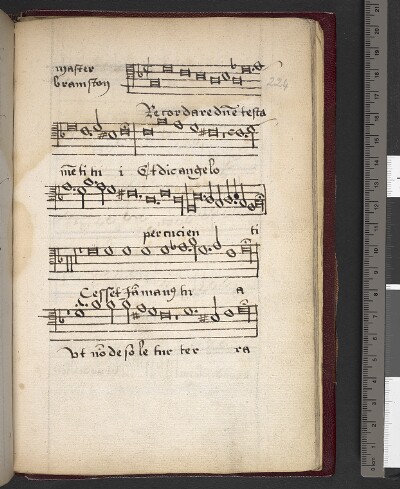 master
bramston
224
Recordare dne testa
me ti tu i Et dic angelo
percucien ti
Cesset ia manus tu a
Ut no desole tur ter ra